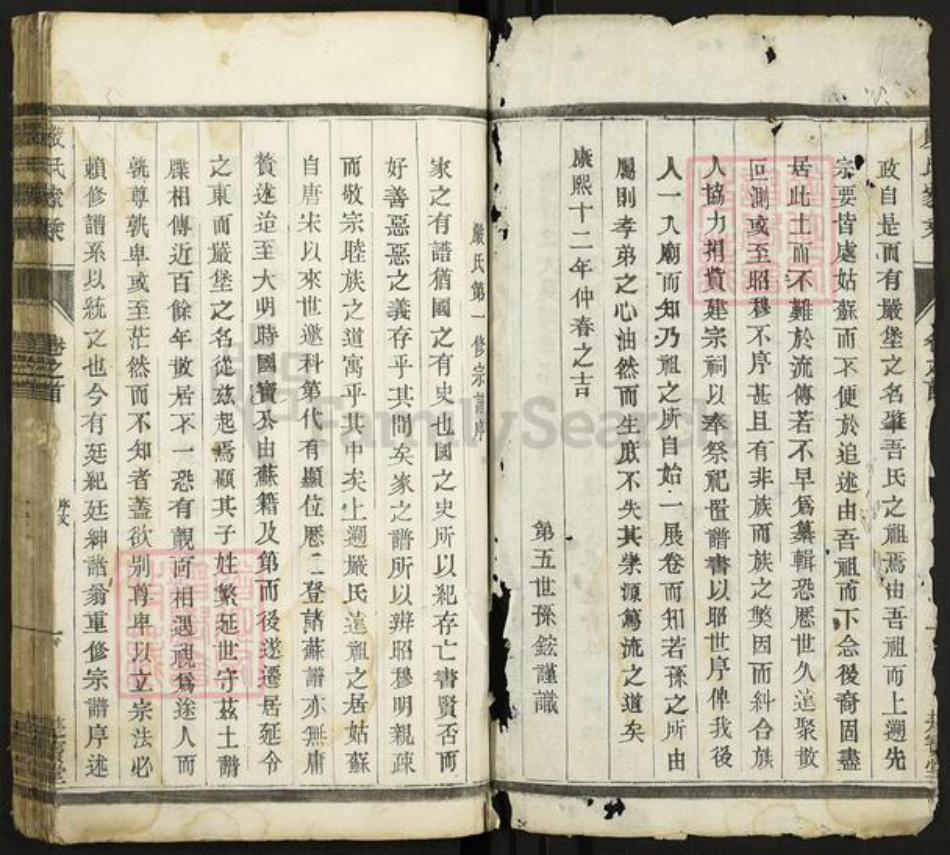 政自是而有嚴堡之名肇吾氏之祖焉由吾祖而上溯先
宗要皆處姑蘇而不便於追述由吾祖而下念後裔固盡
居此土而不難於流傳若不早爲纂輯恐歷世久遠聚散
叵測或至昭穆不序甚且有非族而族之獘因而糾合族
人協力捐貲建宗祠以奉祭祀置譜書以昭世序俾我後
人一入廟而知乃祖之所自始一展卷而知若孫之所由
屬則孝弟之心油然而生庶不失其崇源篤流之道矣
康熙十二年仲春之吉
第五世孫鋐謹識
嚴氏第一修宗譜序
家之有譜猶國之有史也國之史所以紀存亡書賢否而
好善惡惡之義存乎其間矣家之譜所以辨昭穆明親疎
而敬宗睦族之道寓乎其中矣上溯嚴氏遠祖之居姑蘇
自唐宋以來世邀科第代有顯位歷二登諸蘇譜亦無庸
贅述迨至大明時國寶公由蘇籍及第而後遂遷居延令
之東而嚴堡之名從兹起焉顧其子姓繁延世守兹土譜
牒相傳近百餘年散居不一恐有覿面相遇視爲途人而
孰尊孰卑或至茫然而不知者蓋欲别尊卑以立宗法必
賴修譜系以統之也今有廷紀廷紳諸翁重修宗譜序述
嚴氏家乘
卷之首
序文
FamilySearch